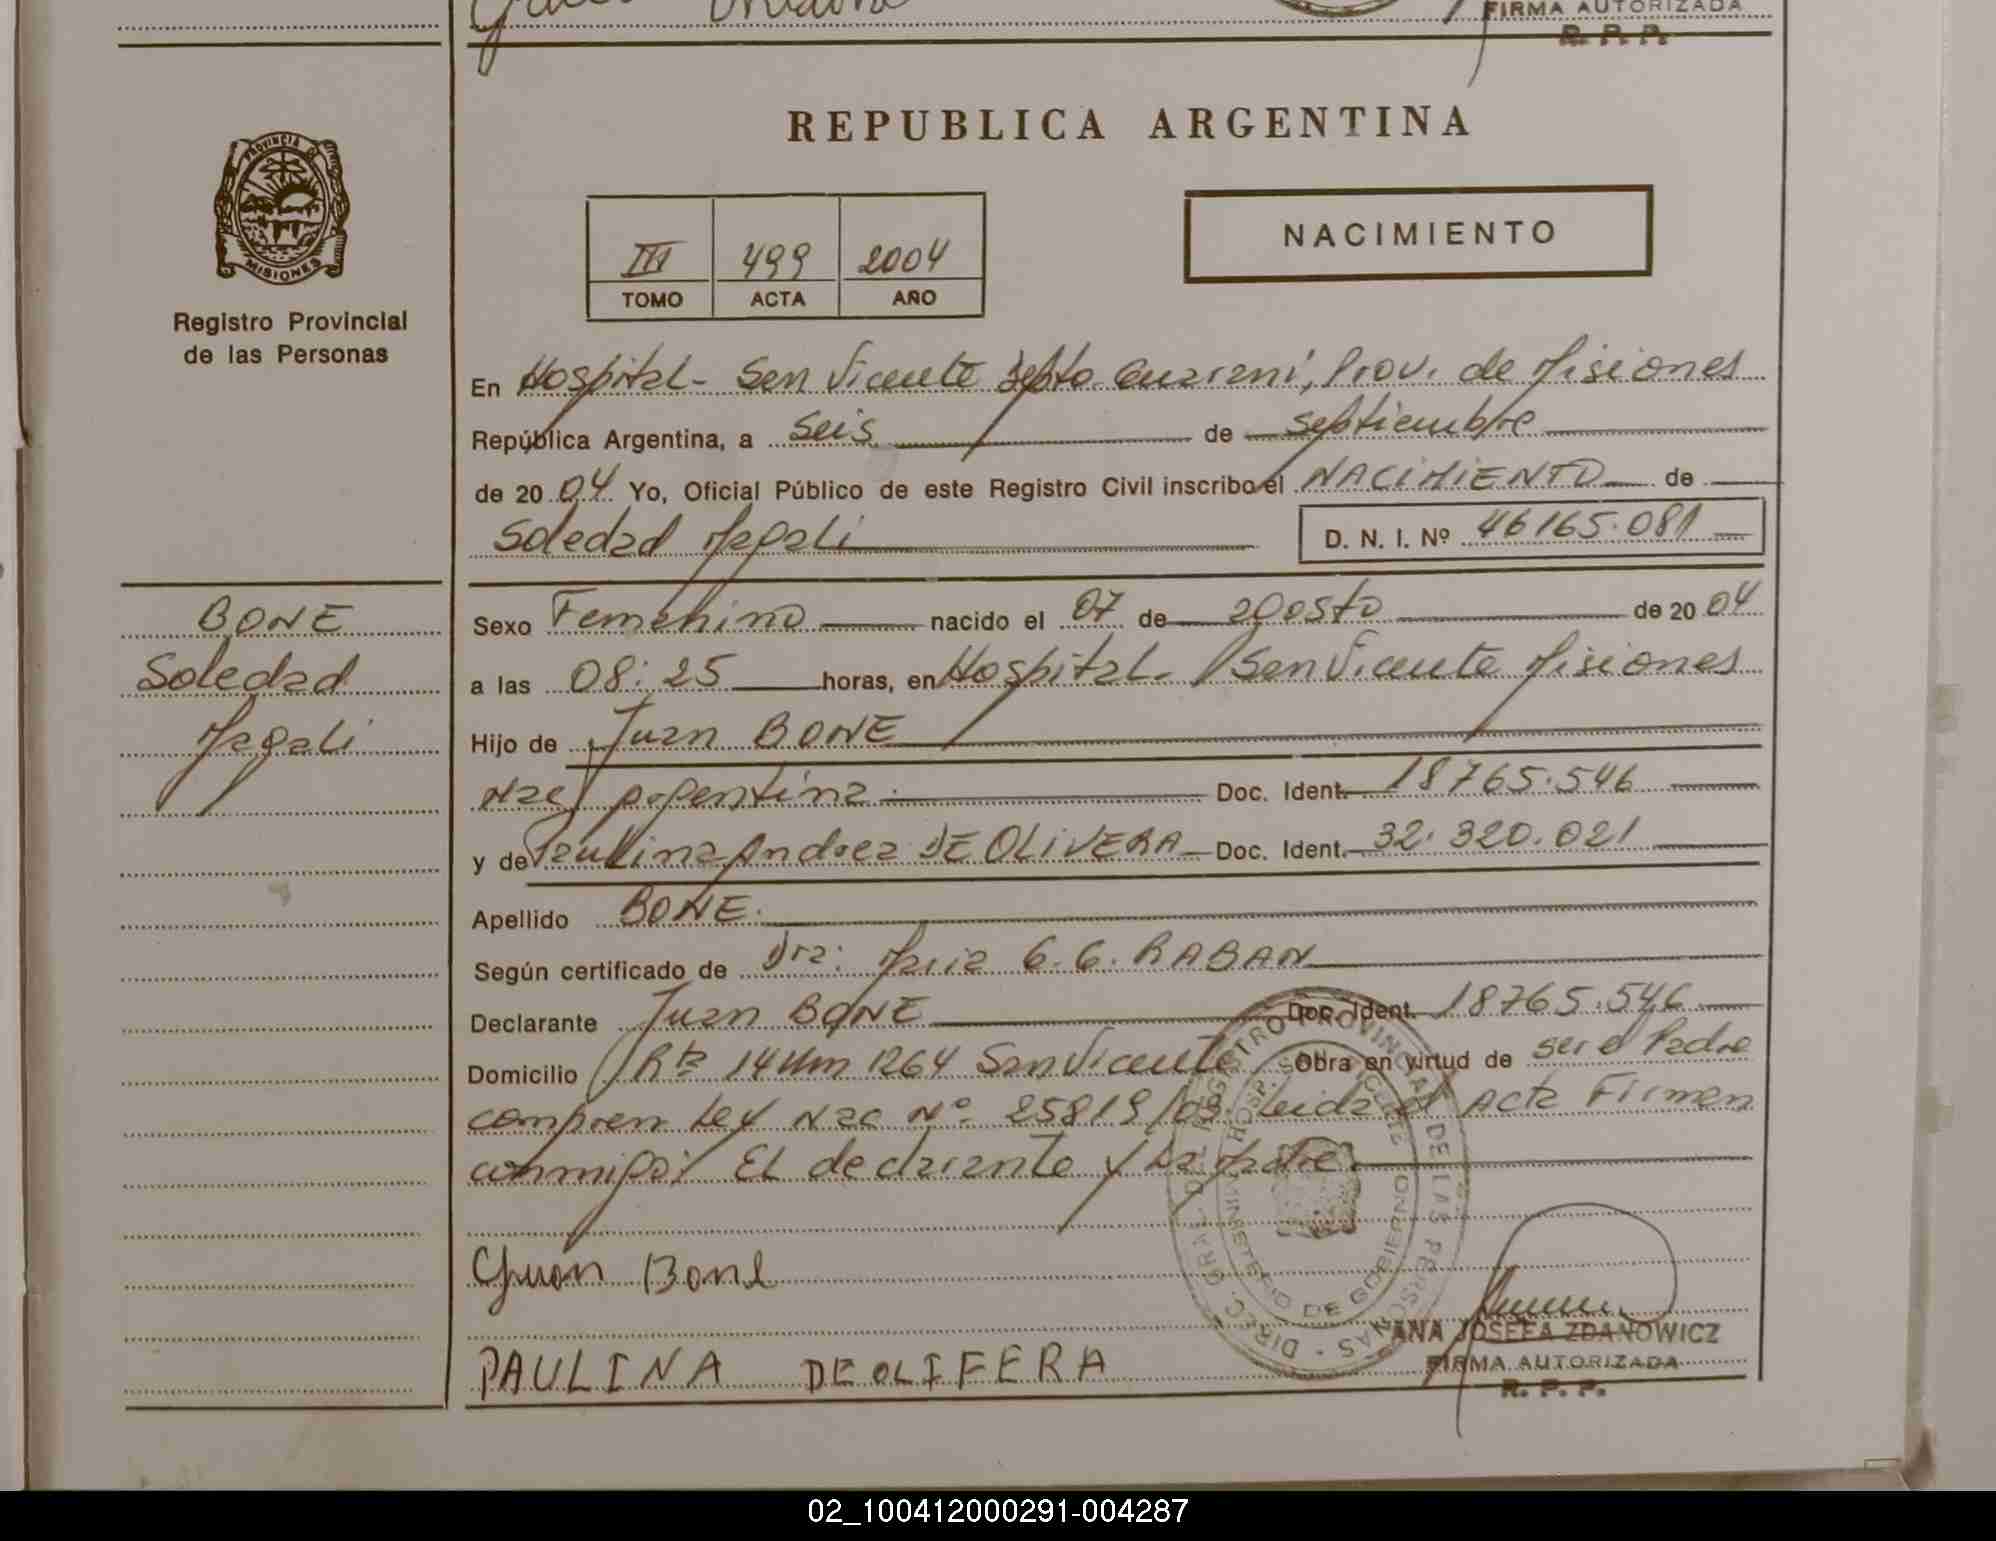 FIRMA AUTORIZADA
R. P. P.
REPUBLICA ARGENTINA
PROVINCIA DE
MISIONES
Registro Provincial
de las Personas
III 499 2004
TOMO ACTA AÑO
NACIMIENTO
En Hospital - San Vicente Depto. Guarani, Prov. de Misiones
República Argentina, a seis de septiembre
de 2004 Yo, Oficial Público de este Registro Civil inscribo el NACIMIENTO de
Soledad Magali
D. N. I. Nº 46165.081
BONE
Soledad
Magali
Sexo Femenino nacido el 07 de agosto de 2004
a las 08:25 horas, en Hospital - San Vicente Misiones
Hijo de Juan BONE
Nac. Argentina Doc. Ident. 18765.546
y de Paulina Andrea DE OLIVERA Doc. Ident. 32.320.021
Apellido BONE.
Según certificado de Dra: Maria G. G. RABAN
Declarante Juan BONE Doc. Ident. 18765.546
Domicilio Rta 14 Km 1264 San Vicente Obra en virtud de ser el Padre
compren Ley Nac Nº 25819/03. Leida el Acta Firman
conmigo: El declarante y la Madre.
Juan Bone
PAULINA DEOLIFERA
DIREC. GRAL. DEL REGISTRO PROVINCIAL DE LAS PERSONAS
MINISTERIO DE GOBIERNO
ANA JOSEFA ZDANOWICZ
FIRMA AUTORIZADA
R. P. P.
02_100412000291-004287